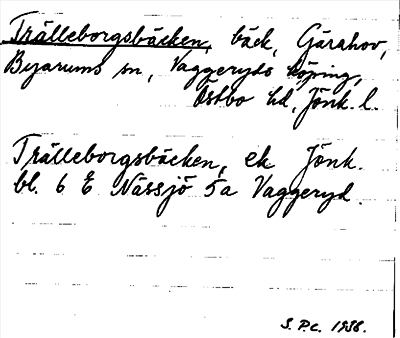 Trälleborgsbäcken, bäck, Gärahov,
Byarums sn, Vaggeryds köping,
Östbo hd, Jönk. l.
Trälleborgsbäcken, ek Jönk.
bl. 6 E Nässjö 5a Vaggeryd.
S. P.C. 1938.